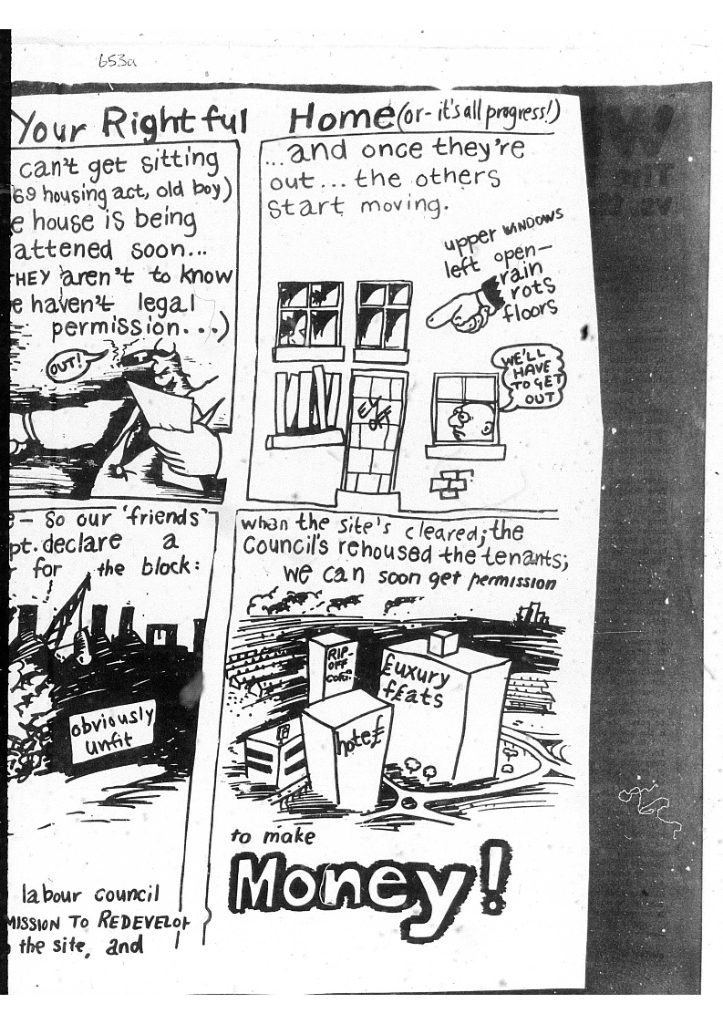 653a
Your Rightful Home (or- it's all progress!)
can't get sitting
69 housing act, old boy)
e house is being
attened soon...
THEY aren't to know
e haven't legal
permission...)
OUT!
...and once they're
out... the others
start moving.
upper WINDOWS
left open-
rain
rots
floors
WE'LL
HAVE
TO GET
OUT
e- So our 'friends'
pt. declare a
for the block:
obviously
unfit
labour council
MISSION TO REDEVELOP
the site, and
when the site's cleared; the
Council's rehoused the tenants;
we can soon get permission
RIP-
OFF
£uxury
f£ats
hote£
to make
Money!